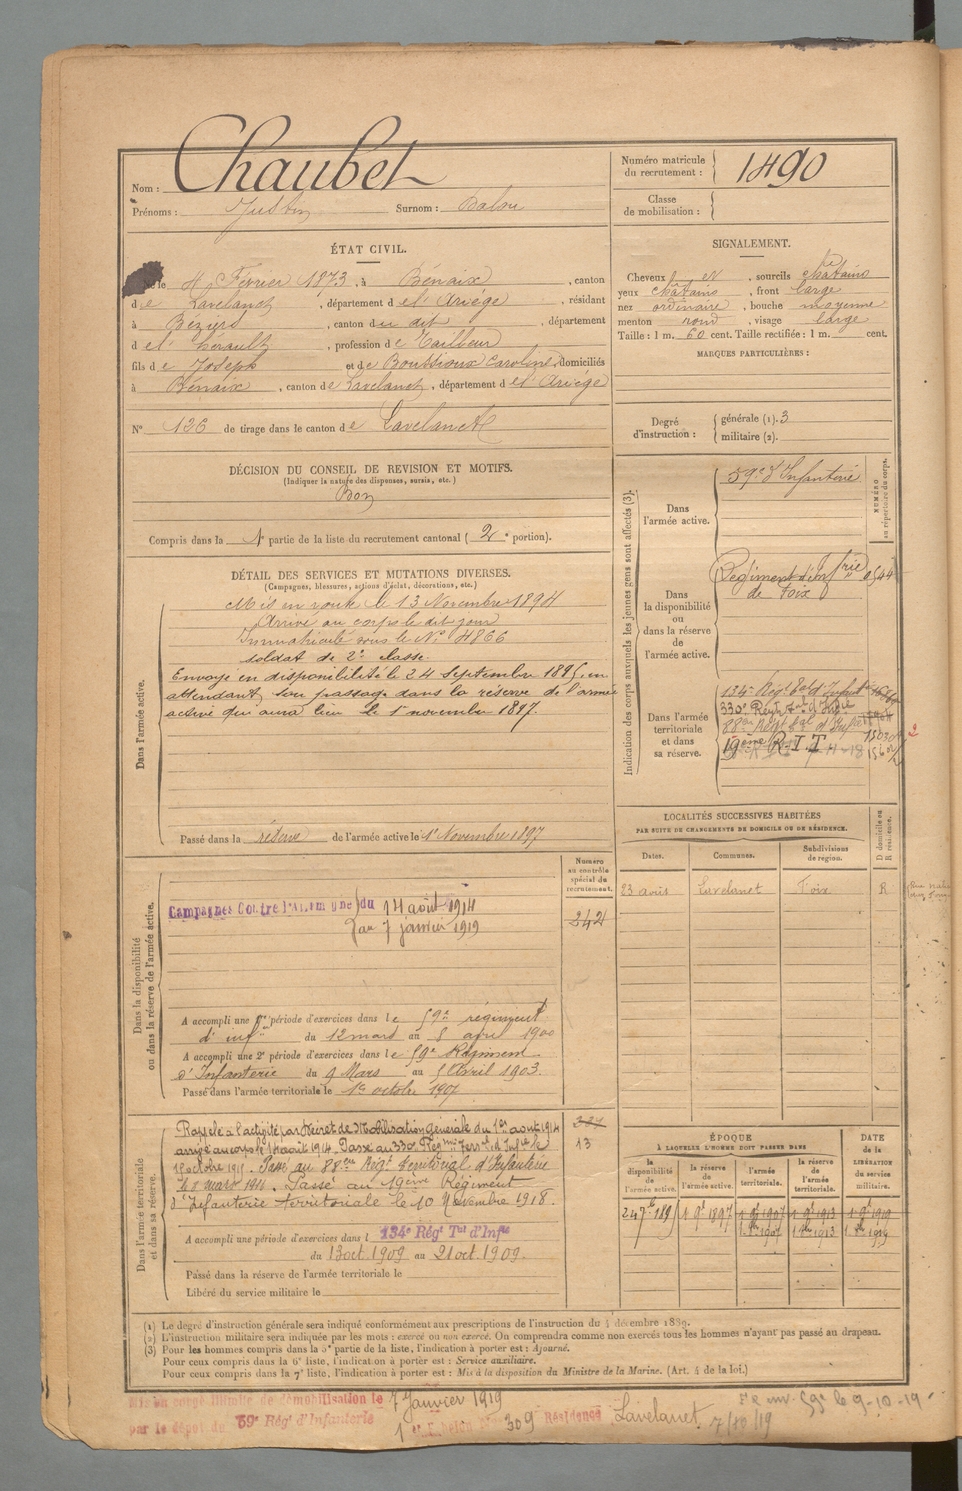 Nom : Chaubet
Prénoms : Justin Surnom :
Numéro matricule du recrutement : 1490
Classe de mobilisation :
ÉTAT CIVIL.
Né le 4 Février 1873, à Bénaix, canton
de Lavelanet, département de l'Ariège, résidant
à Béziers, canton du dit, département
de l'hérault, profession de Tailleur
fils de Joseph et de Boussioux Caroline, domiciliés
à Bénaix, canton de Lavelanet, département de l'Ariège
N° 126 de tirage dans le canton de Lavelanet
SIGNALEMENT.
Cheveux et, sourcils châtains
yeux châtains, front large
nez ordinaire, bouche moyenne
menton rond, visage large
Taille : 1 m. 60 cent. Taille rectifiée : 1 m. cent.
MARQUES PARTICULIÈRES :
Degré d'instruction : générale (1). 3
militaire (2).
DÉCISION DU CONSEIL DE REVISION ET MOTIFS.
(Indiquer la nature des dispenses, sursis, etc.)
Bon
Compris dans la 1e partie de la liste du recrutement cantonal (2e portion).
DÉTAIL DES SERVICES ET MUTATIONS DIVERSES.
(Campagnes, blessures, actions d'éclat, décorations, etc.)
Dans l'armée active.
Mis en route le 13 Novembre 1894
Arrivé au corps le dit jour
Immatriculé sous le N° 4866
soldat de 2e classe.
Envoyé en disponibilité le 24 Septembre 1895, en
attendant son passage dans la réserve de l'armée
active qui aura lieu le 1er novembre 1897.
Passé dans la réserve de l'armée active le 1er Novembre 1897
Indication des corps auxquels les jeunes gens sont affectés (3).
NUMÉRO au répertoire du corps.
Dans l'armée active.
59e d'Infanterie
Dans la disponibilité ou dans la réserve de l'armée active.
Régiment d'infrie
de Foix
Dans l'armée territoriale et dans sa réserve.
134e Régt tal d'Infie
330e Régt tal d'Infie
88e Régt tal d'Infie
19ème R.I.T.
LOCALITÉS SUCCESSIVES HABITÉES
PAR SUITE DE CHANGEMENTS DE DOMICILE OU DE RÉSIDENCE.
Dates. Communes. Subdivisions de région. D domicile ou R résidence.
23 août Lavelanet Foix R
Numéro au contrôle spécial du recrutement.
242
Dans la disponibilité ou dans la réserve de l'armée active.
Campagnes Contre l'Allemagne du 14 août 1914
au 7 janvier 1919
A accompli une 1re période d'exercices dans le 59e régiment
d'infie du 12 mars au 8 april 1900
A accompli une 2e période d'exercices dans le 59e Régiment
d'Infanterie du 9 Mars au 5 Avril 1903
Passé dans l'armée territoriale le 1er octobre 1907
Dans l'armée territoriale et dans sa réserve.
Rappelé à l'activité par Décret de Mobilisation générale du 1er août 1914
arrivé au corps le 14 août 1914. Passé au 330e Régiment Terral d'Infie le
1er octobre 1915. Passé au 88eme Régt territorial d'Infanterie
le 8 mars 1916. Passé au 19eme Régiment
d'Infanterie territoriale le 10 Novembre 1918.
13
A accompli une période d'exercices dans l 134e Régt Tal d'Infie
du 13 oct. 1909 au 21 oct. 1909.
Passé dans la réserve de l'armée territoriale le
Libéré du service militaire le
ÉPOQUE
À LAQUELLE L'HOMME DOIT PASSER DANS
DATE de la LIBÉRATION du service militaire.
la disponibilité de l'armée active. la réserve de l'armée active. l'armée territoriale. la réserve de l'armée territoriale.
24 7e 1895 1 9e 1897 1 9e 1907 1 9e 1913 1 9e 1919
(1) Le degré d'instruction générale sera indiqué conformément aux prescriptions de l'instruction du 4 décembre 1889.
(2) L'instruction militaire sera indiquée par les mots : exercé ou non exercé. On comprendra comme non exercés tous les hommes n'ayant pas passé au drapeau.
(3) Pour les hommes compris dans la 5e partie de la liste, l'indication à porter est : Ajourné.
Pour ceux compris dans la 6e liste, l'indication à porter est : Service auxiliaire.
Pour ceux compris dans la 7e liste, l'indication à porter est : Mis à la disposition du Ministre de la Marine. (Art. 4 de la loi.)
Mis en congé illimité de démobilisation le 7 Janvier 1919
par le dépôt du 59e Régt d'Infanterie
1er Echelon 309 Résidence Lavelanet 7/10/19
59e le 9-10-19